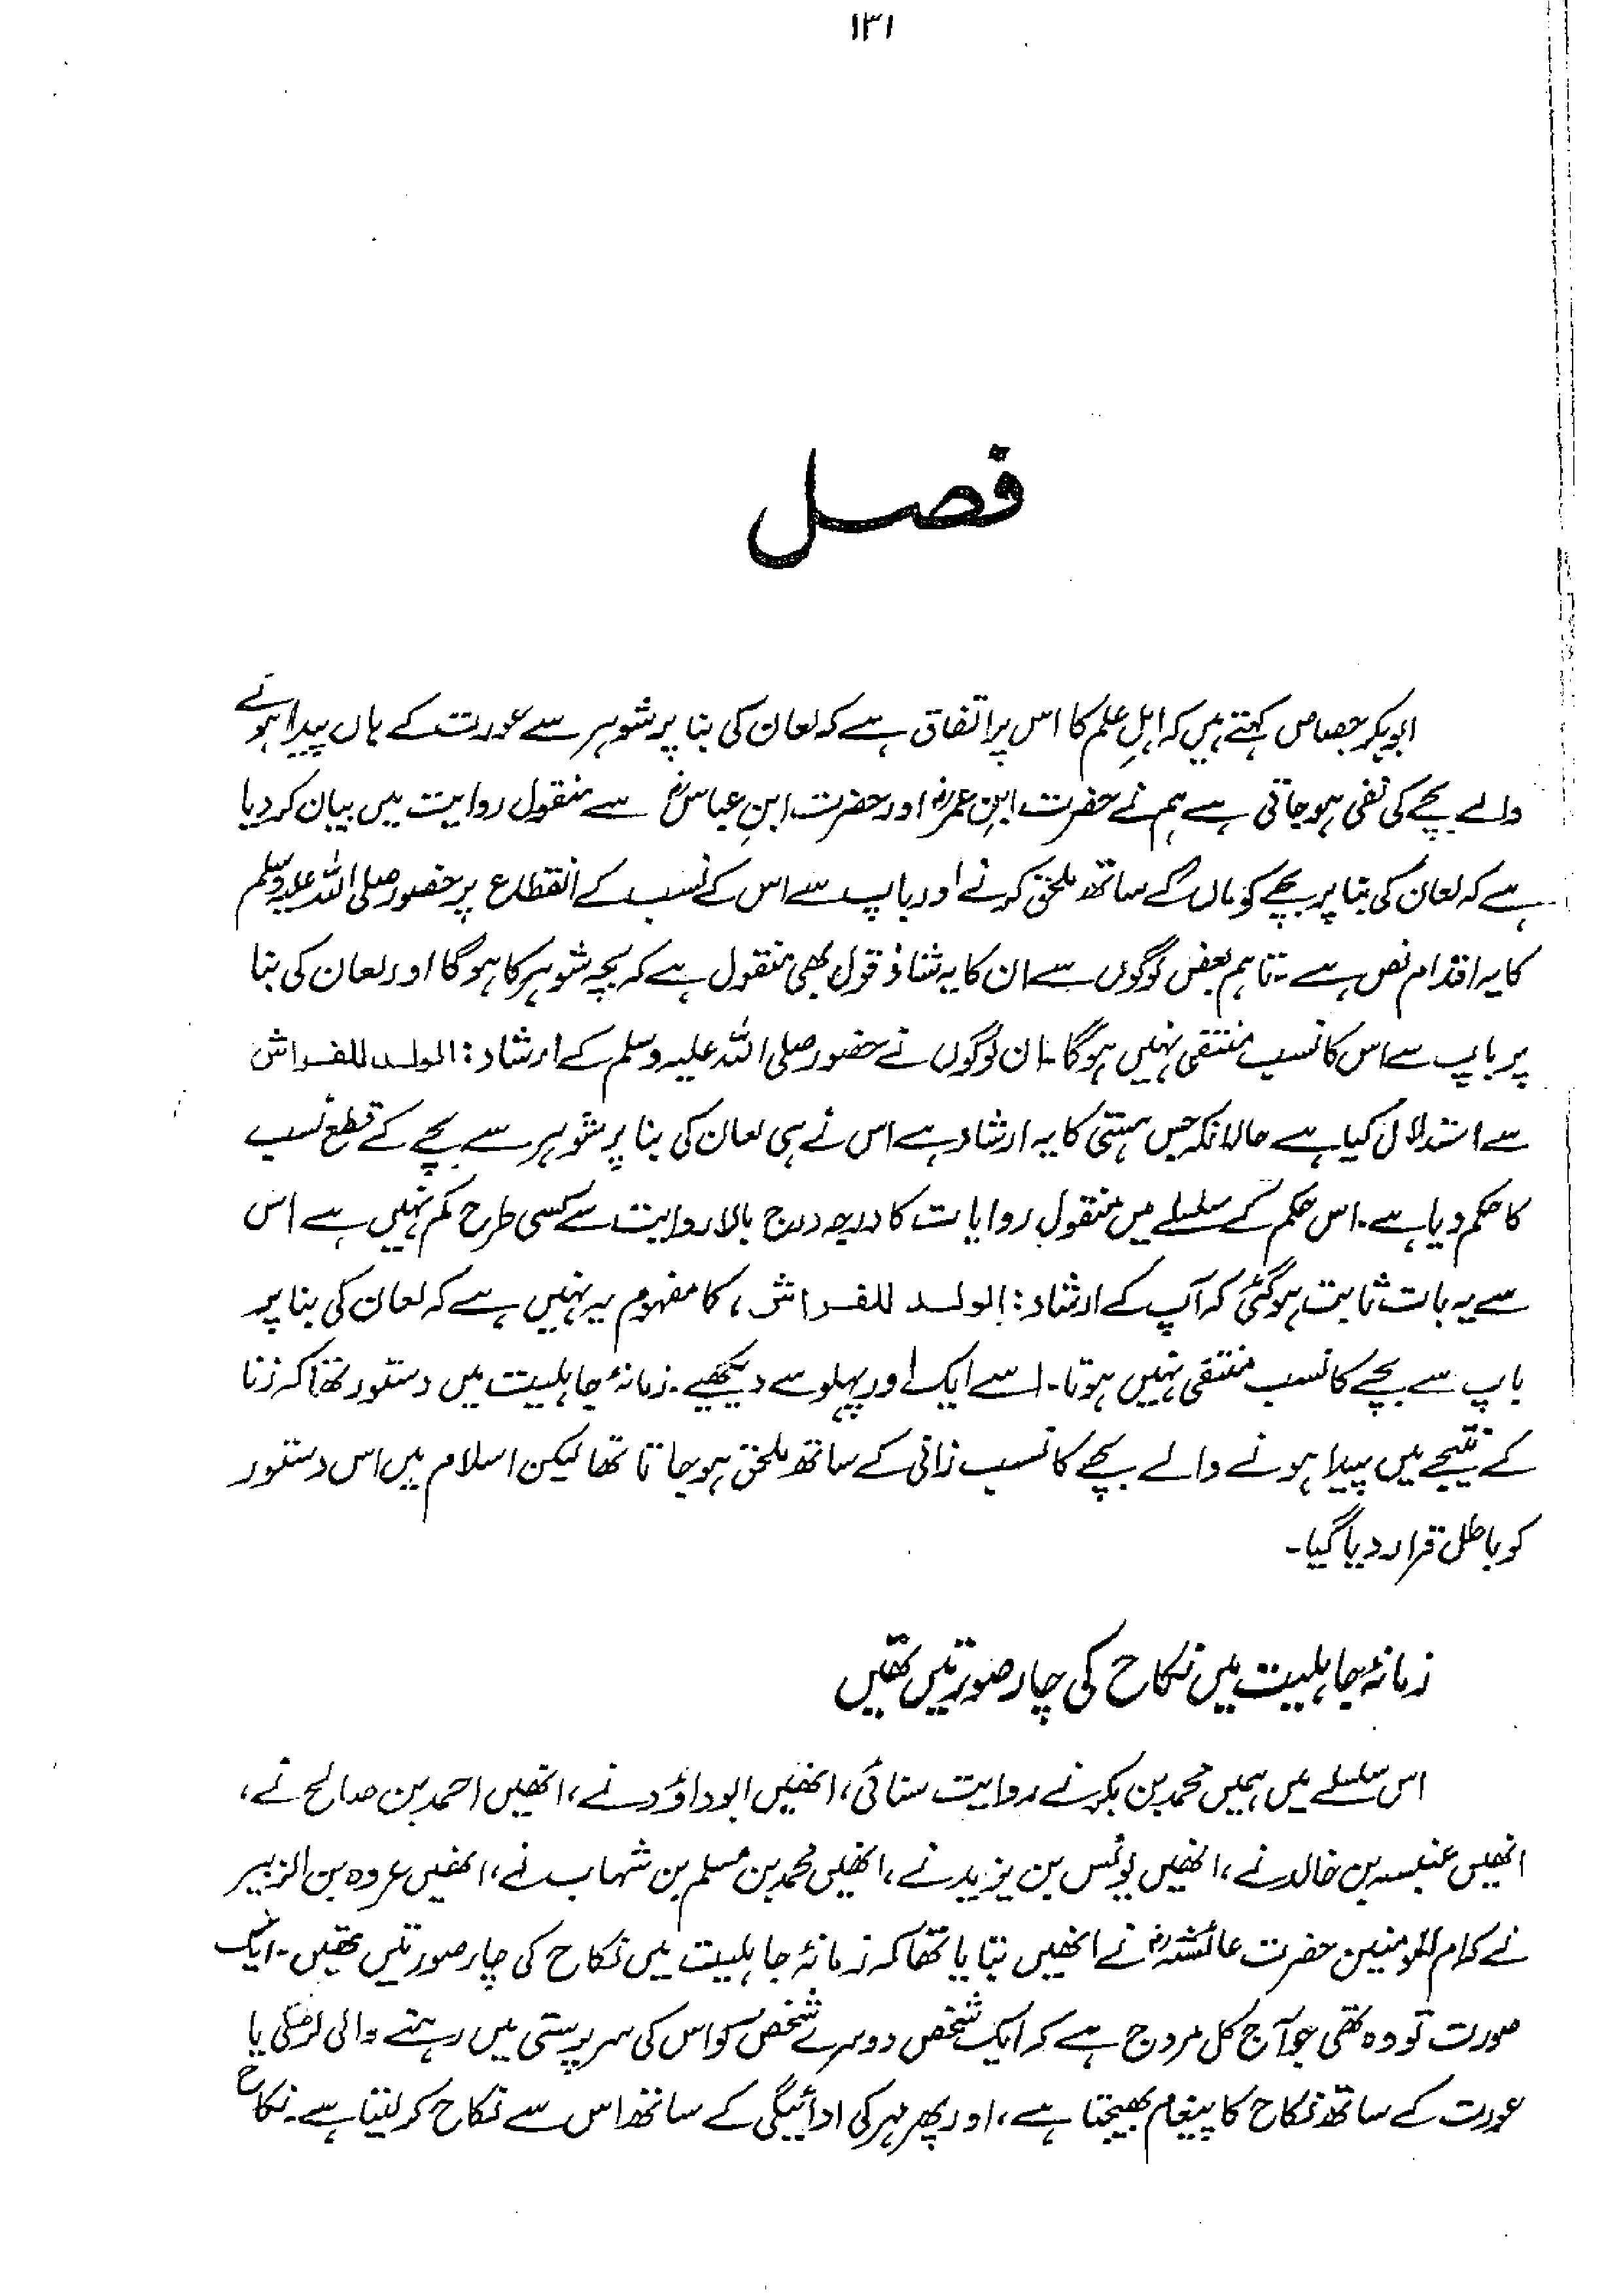 ۱۳۱
فصل
ابوبکر جصاص کہتے ہیں کہ اہلِ علم کا اس پر اتفاق ہے کہ لعان کی بنا پر شوہر سے عورت کے ہاں پیدا ہونے
والے بچے کی نفی ہوجاتی ہے ہم نے حضرت ابن عمرؓ اور حضرت ابنِ عباسؓ سے منقول روایت میں بیان کردیا
ہے کہ لعان کی بنا پر بچے کو ماں کے ساتھ ملحق کرنے اور باپ سے اس کے نسب کے انقطاع پر حضور صلی اللہ علیہ وسلم
کا یہ اقدام نص ہے۔ تاہم بعض لوگوں سے ان کا یہ شاذ قول بھی منقول ہے کہ بچہ شوہر کا ہوگا اور لعان کی بنا
پر باپ سے اس کا نسب منتفی نہیں ہوگا۔ ان لوگوں نے حضور صلی اللہ علیہ وسلم کے ارشاد: الولد للفراش
سے استدلال کیا ہے حالانکہ جس ہستی کا یہ ارشاد ہے اس نے ہی لعان کی بنا پر شوہر سے بچے کے قطع نسب
کا حکم دیا ہے۔ اس حکم کے سلسلے میں منقول روایات کا درجہ درج بالا روایت سے کسی طرح کم نہیں ہے اس
سے یہ بات ثابت ہوگئی کہ آپ کے ارشاد: الولد للفراش، کا مفہوم یہ نہیں ہے کہ لعان کی بنا پر
باپ سے بچے کا نسب منتفی نہیں ہوتا۔ اسے ایک اور پہلو سے دیکھیے۔ زمانۂ جاہلیت میں دستور تھا کہ زنا
کے نتیجے میں پیدا ہونے والے بچے کا نسب زانی کے ساتھ ملحق ہوجاتا تھا لیکن اسلام میں اس دستور
کو باطل قرار دیا گیا۔
زمانۂ جاہلیت میں نکاح کی چار صورتیں تھیں
اس سلسلے میں ہمیں محمد بن بکر نے روایت سنائی، انھیں ابوداؤد نے، انھیں احمد بن صالح نے،
انھیں عنبسہ بن خالد نے، انھیں یونس بن یزید نے، انھیں محمد بن مسلم بن شہاب نے، انھیں عروہ بن الزبیر
نے کہ ام المومنین حضرت عائشہؓ نے انھیں بتایا تھا کہ زمانۂ جاہلیت میں نکاح کی چار صورتیں تھیں۔ ایک
صورت تو وہ تھی جو آج کل مروج ہے کہ ایک شخص دوسرے شخص کو اس کی سرپرستی میں رہنے والی لڑکی یا
عورت کے ساتھ نکاح کا پیغام بھیجتا ہے، اور پھر مہر کی ادائیگی کے ساتھ اس سے نکاح کرلیتا ہے۔ نکاح